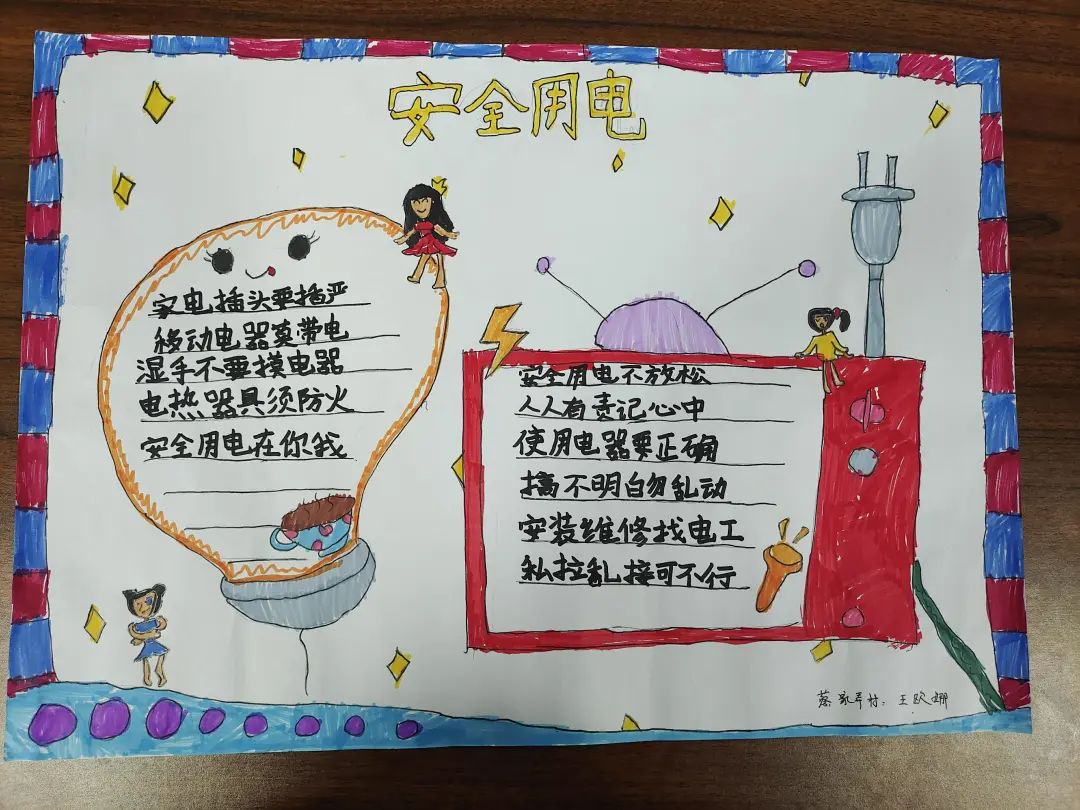 安全用电
家电插头要插严
移动电器莫带电
湿手不要摸电器
电热器具须防火
安全用电在你我
安全用电不放松
人人有责记心中
使用电器要正确
搞不明白勿乱动
安装维修找电工
私拉乱接可不行
蔡家弄村：王欧姗